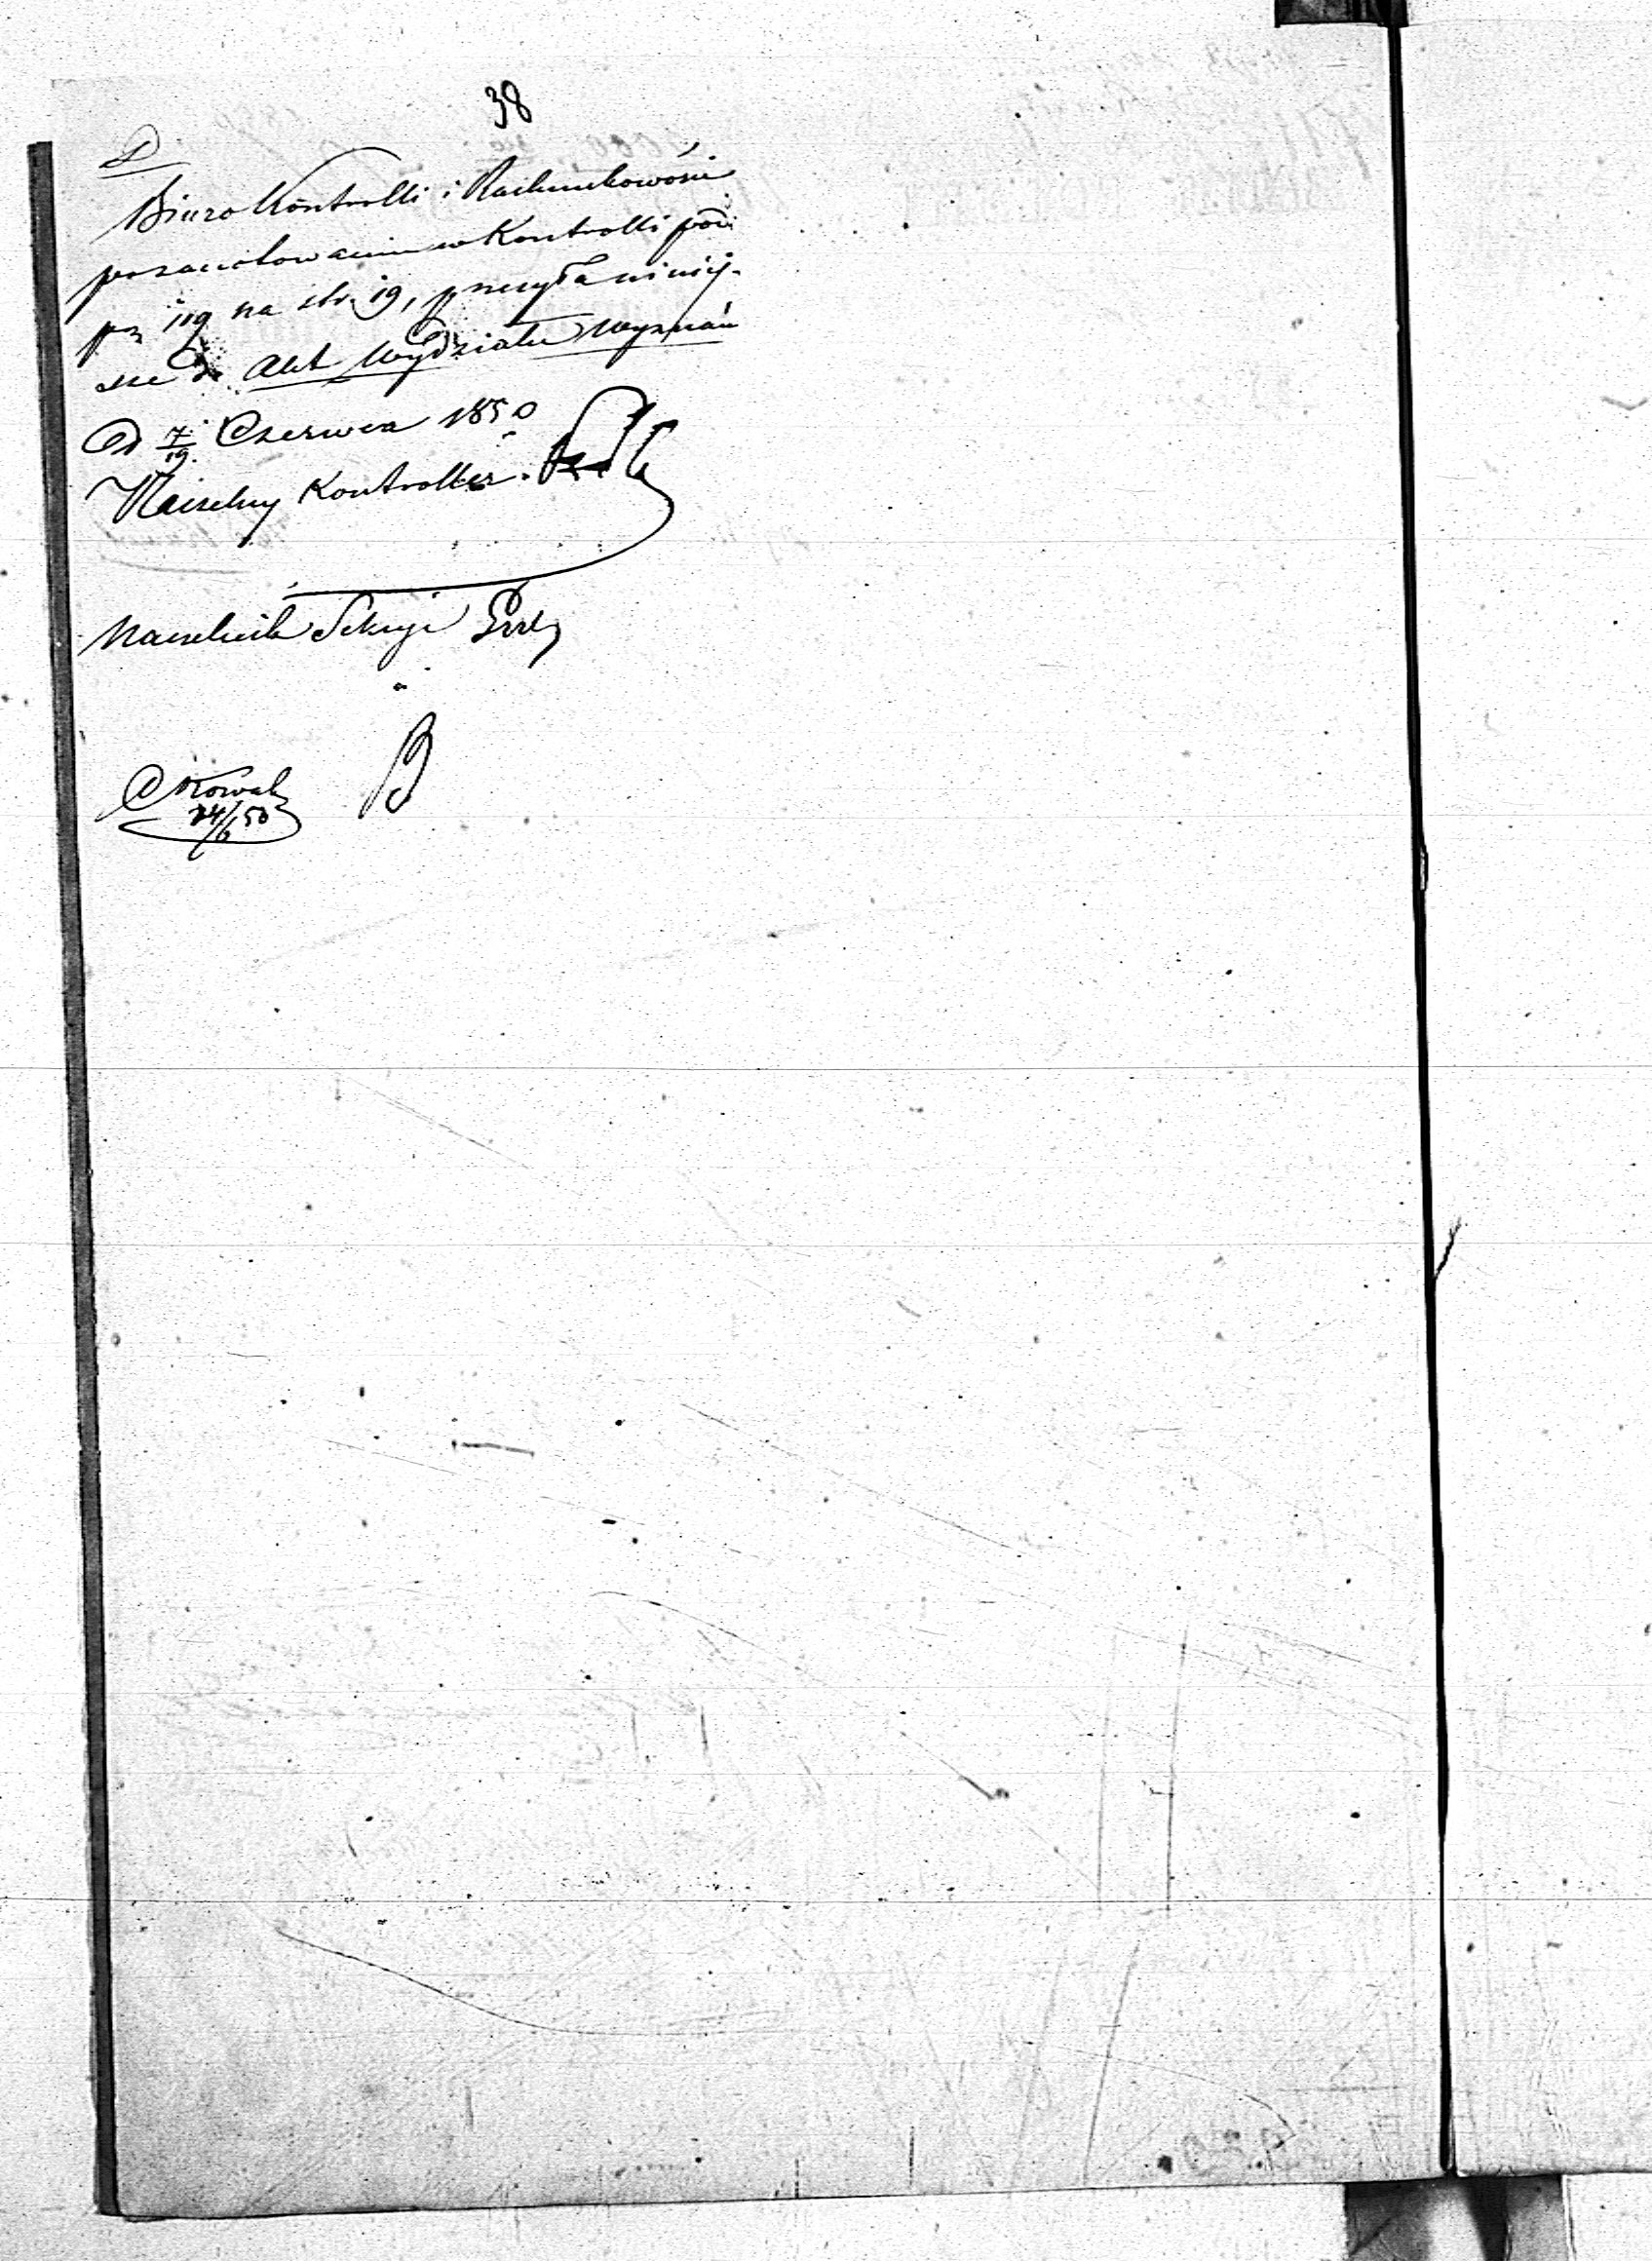 38
D
Biuro Kontrolli i Rachunkowości
pozanotowaniu w Kontrolli pod
pz 119 na str. 19, przesyła niniej-
sze do Akt Wydziału Wyznań
D 7/19 Czerwca 1850
Naczelny Kontroller
Naczelnik Sekcyi
24/6 50